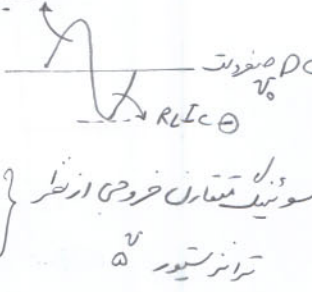 DC صفر ولت
V₀
RLIC ⊖
سوئینگ متقارن خروجی از نظر
ترانزیستور